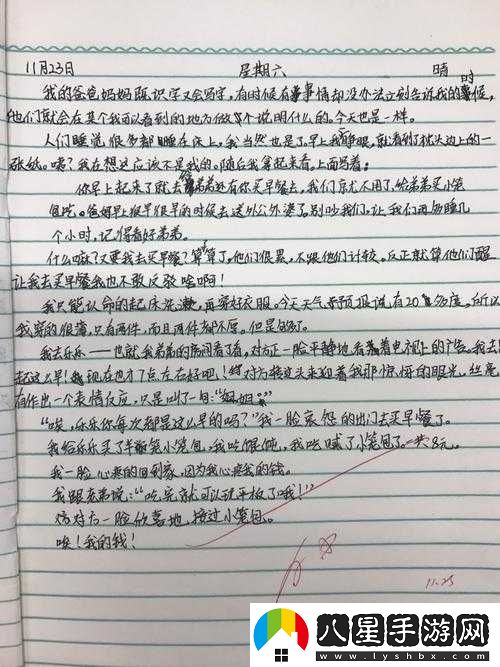 11月23日 星期六 晴
我的爸爸妈妈既识字又会写字，有时候有事情却没办法立刻告诉我的时候，
他们就会在某个我可以看到的地方做个说明什么的。今天也是一样。
人们睡觉很多都睡在床上，我当然也是了。早上我睁眼，就看到了枕头边上的一
张纸。咦？我在想这应该不是我的。随后我拿起来看，上面写着：
你早上起来了就去给弟弟还有你买早餐去，我们就不用了，给弟弟买小笼
包吃。爸妈早上很早很早的时候去送外公外婆了。别吵我们，让我们再多睡几
个小时，记得看好弟弟。
什么嘛？又要我去买早餐？算了算了，他们很累，不跟他们计较。反正就算他们醒
让我去买早餐我也不敢反驳啥啊！
我只能认命的起床洗漱，再穿好衣服。今天天气预报说有20多度，所以
我穿的很薄，只有两件，而且两件都不厚。但是够了。
我去乐乐——也就我弟弟的房间看了看，对方正一脸平静地看着电视上的广告。我去！
起这么早！我现在也才7点左右好吧！对方接过头来迎着我那惊悔的眼光，丝毫
有作出一个表情反应，只是叫了一句：“姐姐。”
“唉，乐乐你每次都是这么早的吗？”我一脸哀怨的出门去买早餐了。
我给乐乐买了半笼小笼包，我吃馄饨，我吃腻了小笼包了。一共8元。
我一脸心疼的回到家，因为我心疼我的钱。
我跟弟弟说：“吃完就可以玩平板了哦！”
对方一脸欣喜地，接过小笼包。
唉！我的钱！
11.25
八星手游网
www.lyshbx.com